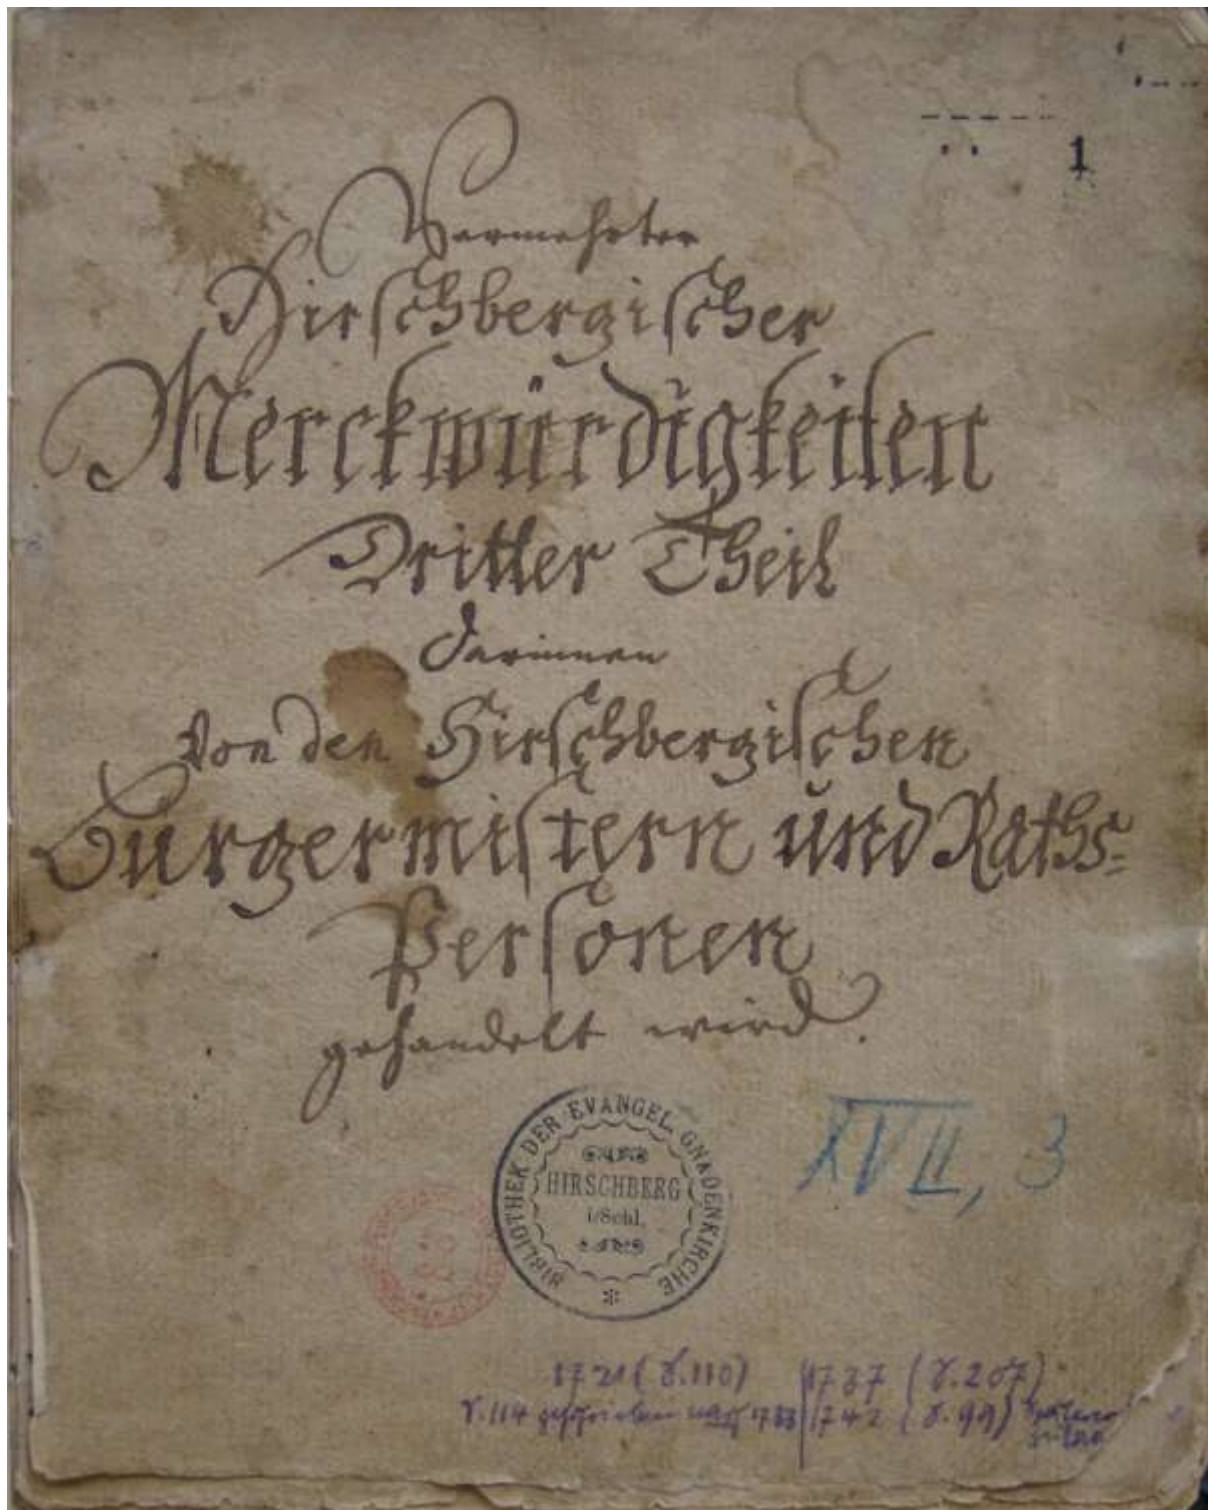 1
Vermehrter
Hirschbergischer
Merckwürdigkeiten
Dritter Theil
darinnen
Von den Hirschbergischen
Burgermistern und Raths-
Personen
gehandelt wird.
BIBLIOTHEK DER EVANGEL. GNADENKIRCHE
HIRSCHBERG
i/Schl.
XVII, 3
1721 (S.110) 1737 (S.207)
S.114 geschrieben nach 1733 1742 (S.99)